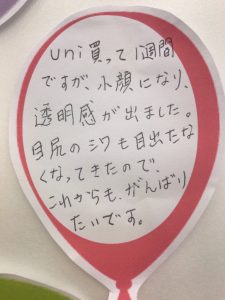 uni買って1週間
ですが、小顔になり、
透明感が出ました。
目尻のシワも目出たな
くなってきたので、
これからも、がんばり
たいです。